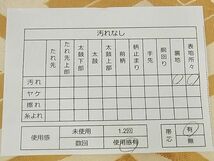 汚れなし
たれ先
たれ先上部
太鼓下部
太鼓
太鼓上部
前柄
柄止まり
手先
胴回り
裏地
表地所々
汚れ
ヤケ
擦れ
糸よれ
使用感
未使用
1.2回
数回
使用感有
帯芯
有
無